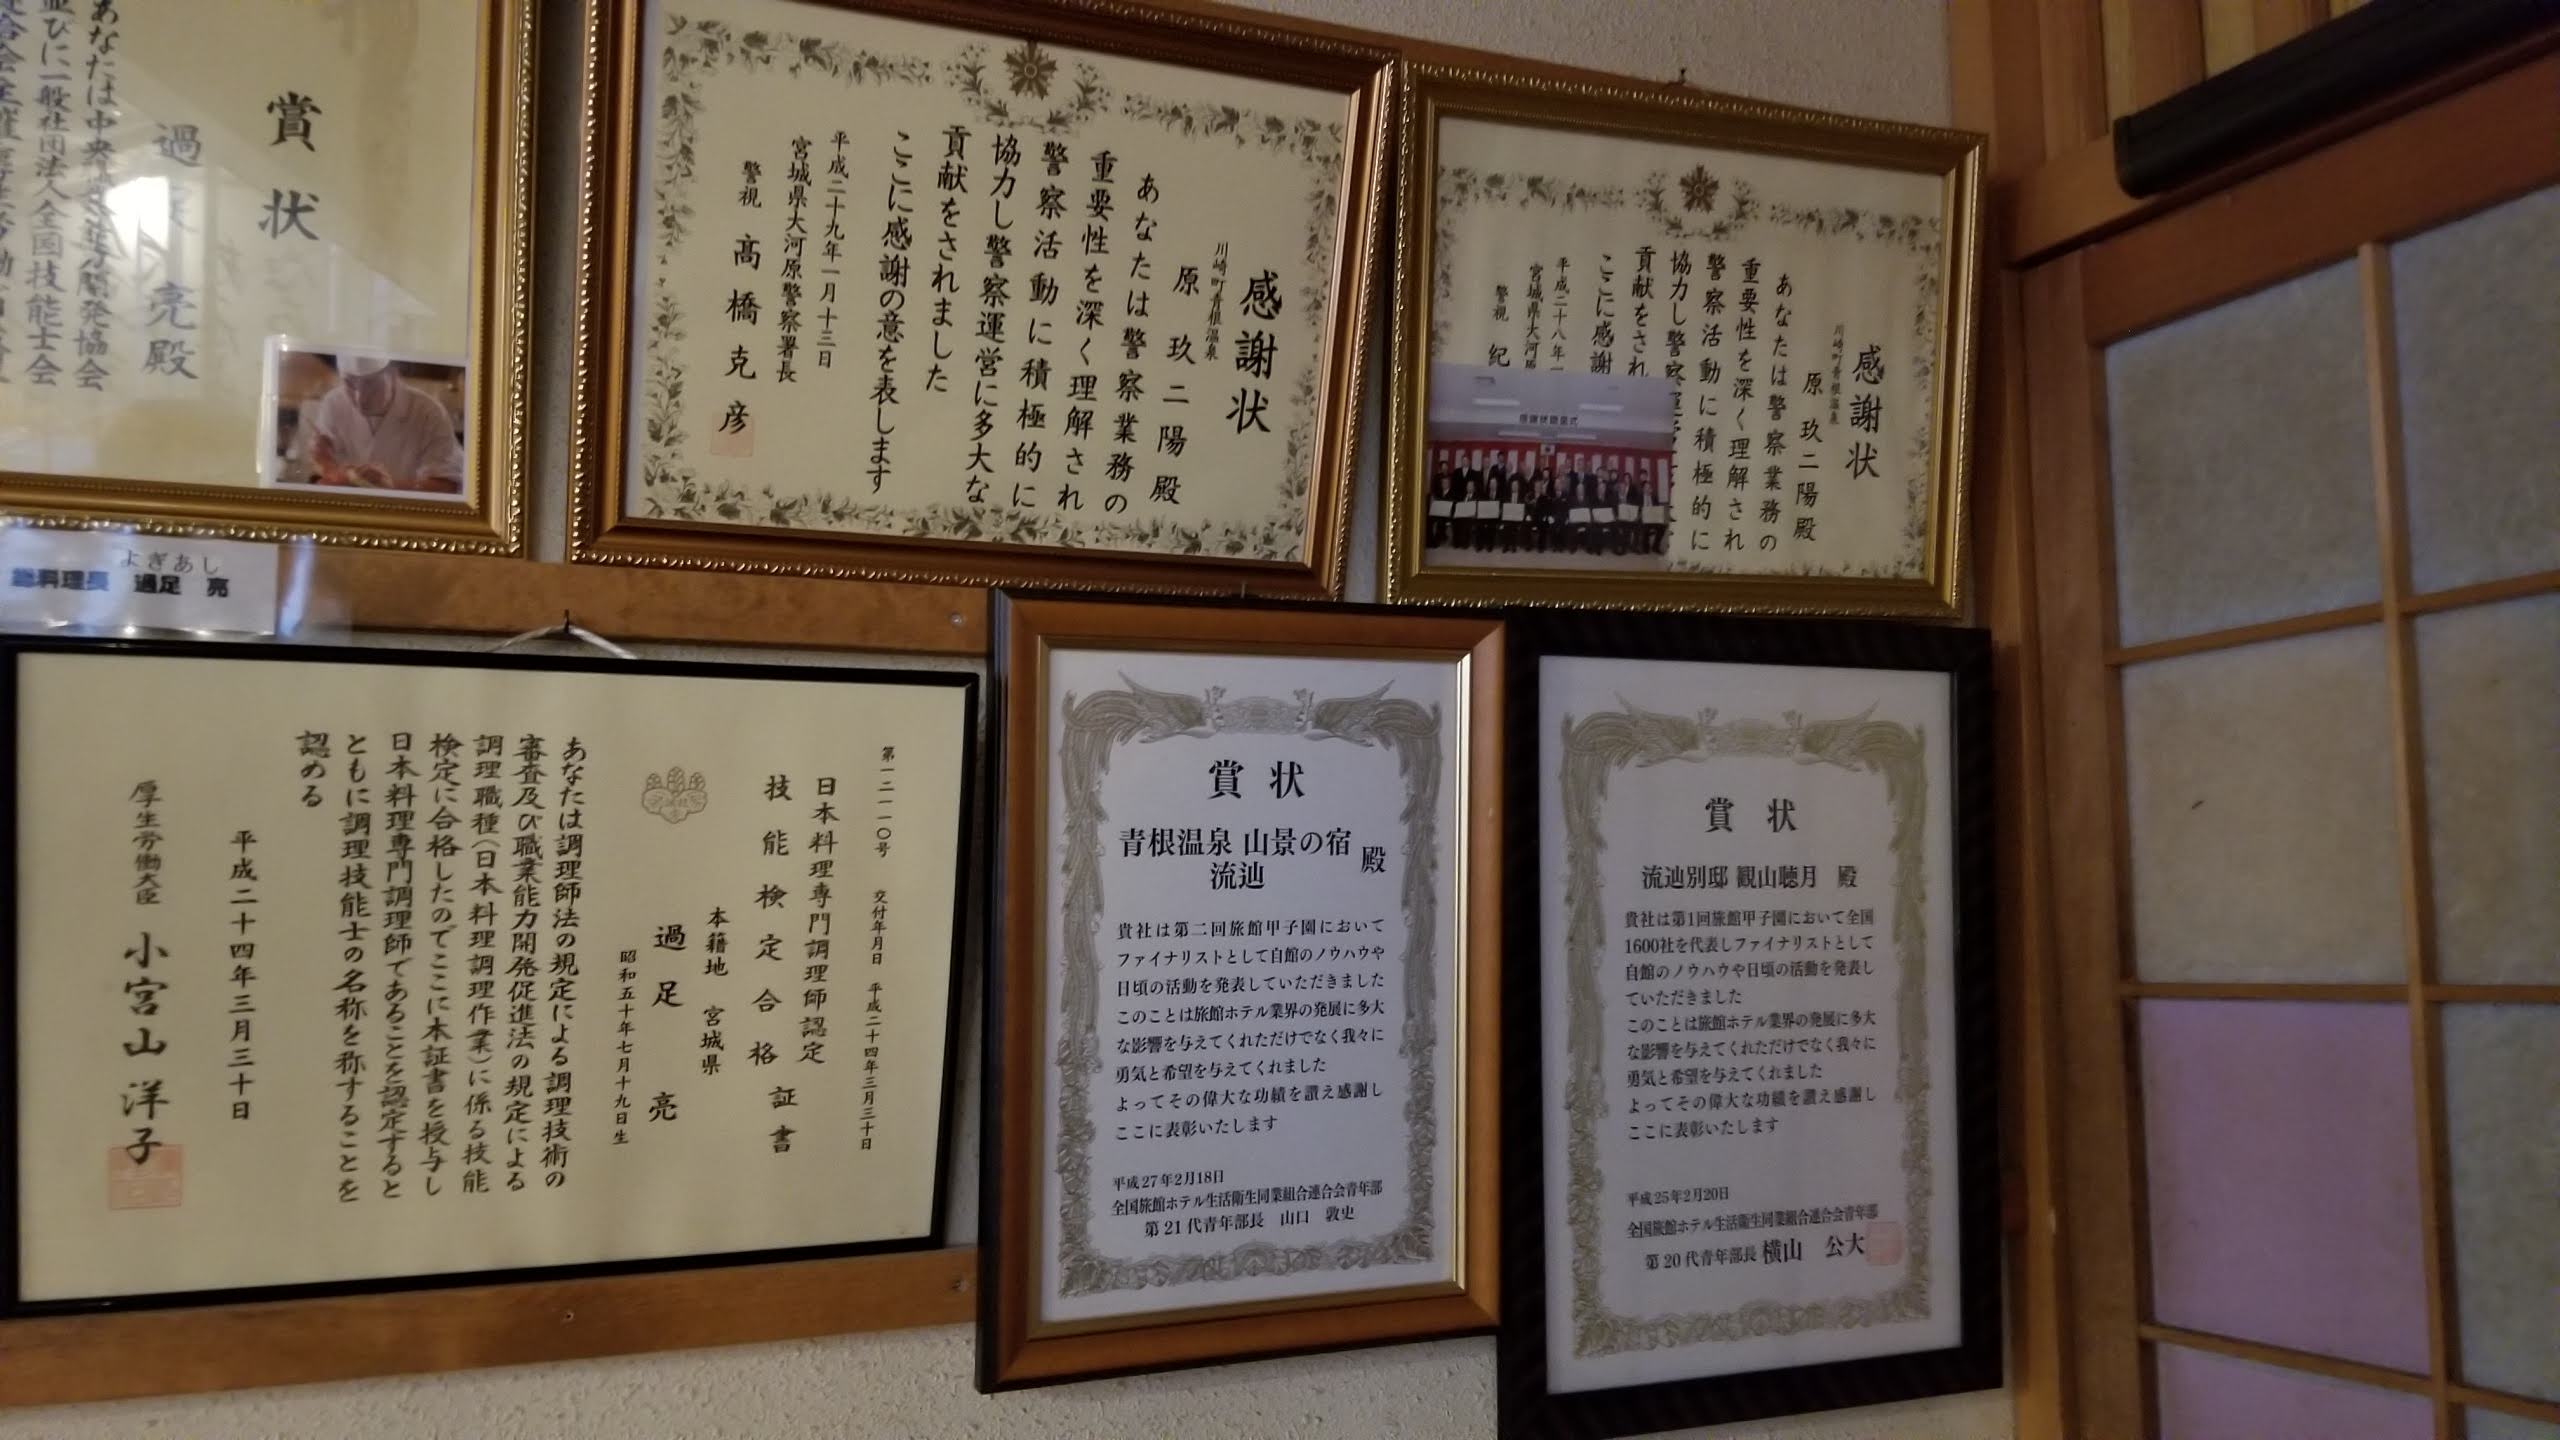 賞状
過足 亮殿
あなたは中央
発協会
並びに一般社団法人全国技能士会
総料理長 過足 亮
よぎあし
感謝状
川崎町青根温泉
原 玖二陽殿
あなたは警察業務の
重要性を深く理解され
警察活動に積極的に
協力し警察運営に多大な
貢献をされました
ここに感謝の意を表します
平成二十九年一月十三日
宮城県大河原警察署長
警視 髙橋克彦
感謝状
川崎町青根温泉
原 玖二陽殿
あなたは警察業務の
重要性を深く理解され
警察活動に積極的に
協力し警察
貢献をされ
ここに感謝
平成二十八年
宮城県大河原
警視 紀
第一二一一〇号 交付年月日 平成二十四年三月三十日
日本料理専門調理師認定
技能検定合格証書
本籍地 宮城県
過足 亮
昭和五十年七月十九日生
あなたは調理師法の規定による調理技術の
審査及び職業能力開発促進法の規定による
調理職種(日本料理調理作業)に係る技能
検定に合格したのでここに本証書を授与し
日本料理専門調理師であることを認定すると
ともに調理技能士の名称を称することを
認める
平成二十四年三月三十日
厚生労働大臣 小宮山洋子
賞 状
青根温泉 山景の宿
流辿
殿
貴社は第二回旅館甲子園において
ファイナリストとして自館のノウハウや
日頃の活動を発表していただきました
このことは旅館ホテル業界の発展に多大
な影響を与えてくれただけでなく我々に
勇気と希望を与えてくれました
よってその偉大な功績を讃え感謝し
ここに表彰いたします
平成27年2月18日
全国旅館ホテル生活衛生同業組合連合会青年部
第21代青年部長 山口 敦史
賞 状
流辿別邸 観山聴月 殿
貴社は第1回旅館甲子園において全国
1600社を代表しファイナリストとして
自館のノウハウや日頃の活動を発表し
ていただきました
このことは旅館ホテル業界の発展に多大
な影響を与えてくれただけでなく我々に
勇気と希望を与えてくれました
よってその偉大な功績を讃え感謝し
ここに表彰いたします
平成25年2月20日
全国旅館ホテル生活衛生同業組合連合会青年部
第20代青年部長 横山 公大